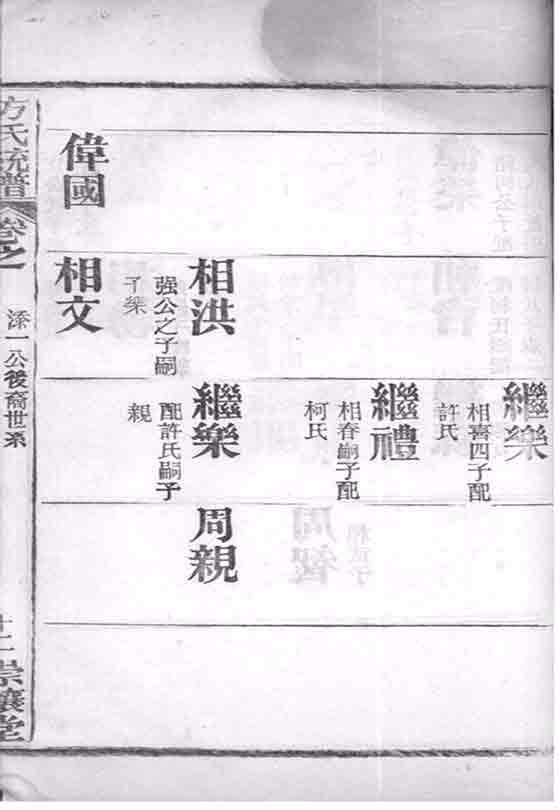 繼樂
相喜四子配
許氏
繼禮
相春嗣子配
柯氏
相洪
强公之子嗣
子樂
繼樂
配許氏嗣子
親
周親
偉國
相文
方氏統譜
卷之一
添一公後裔世系
十二
崇讓堂